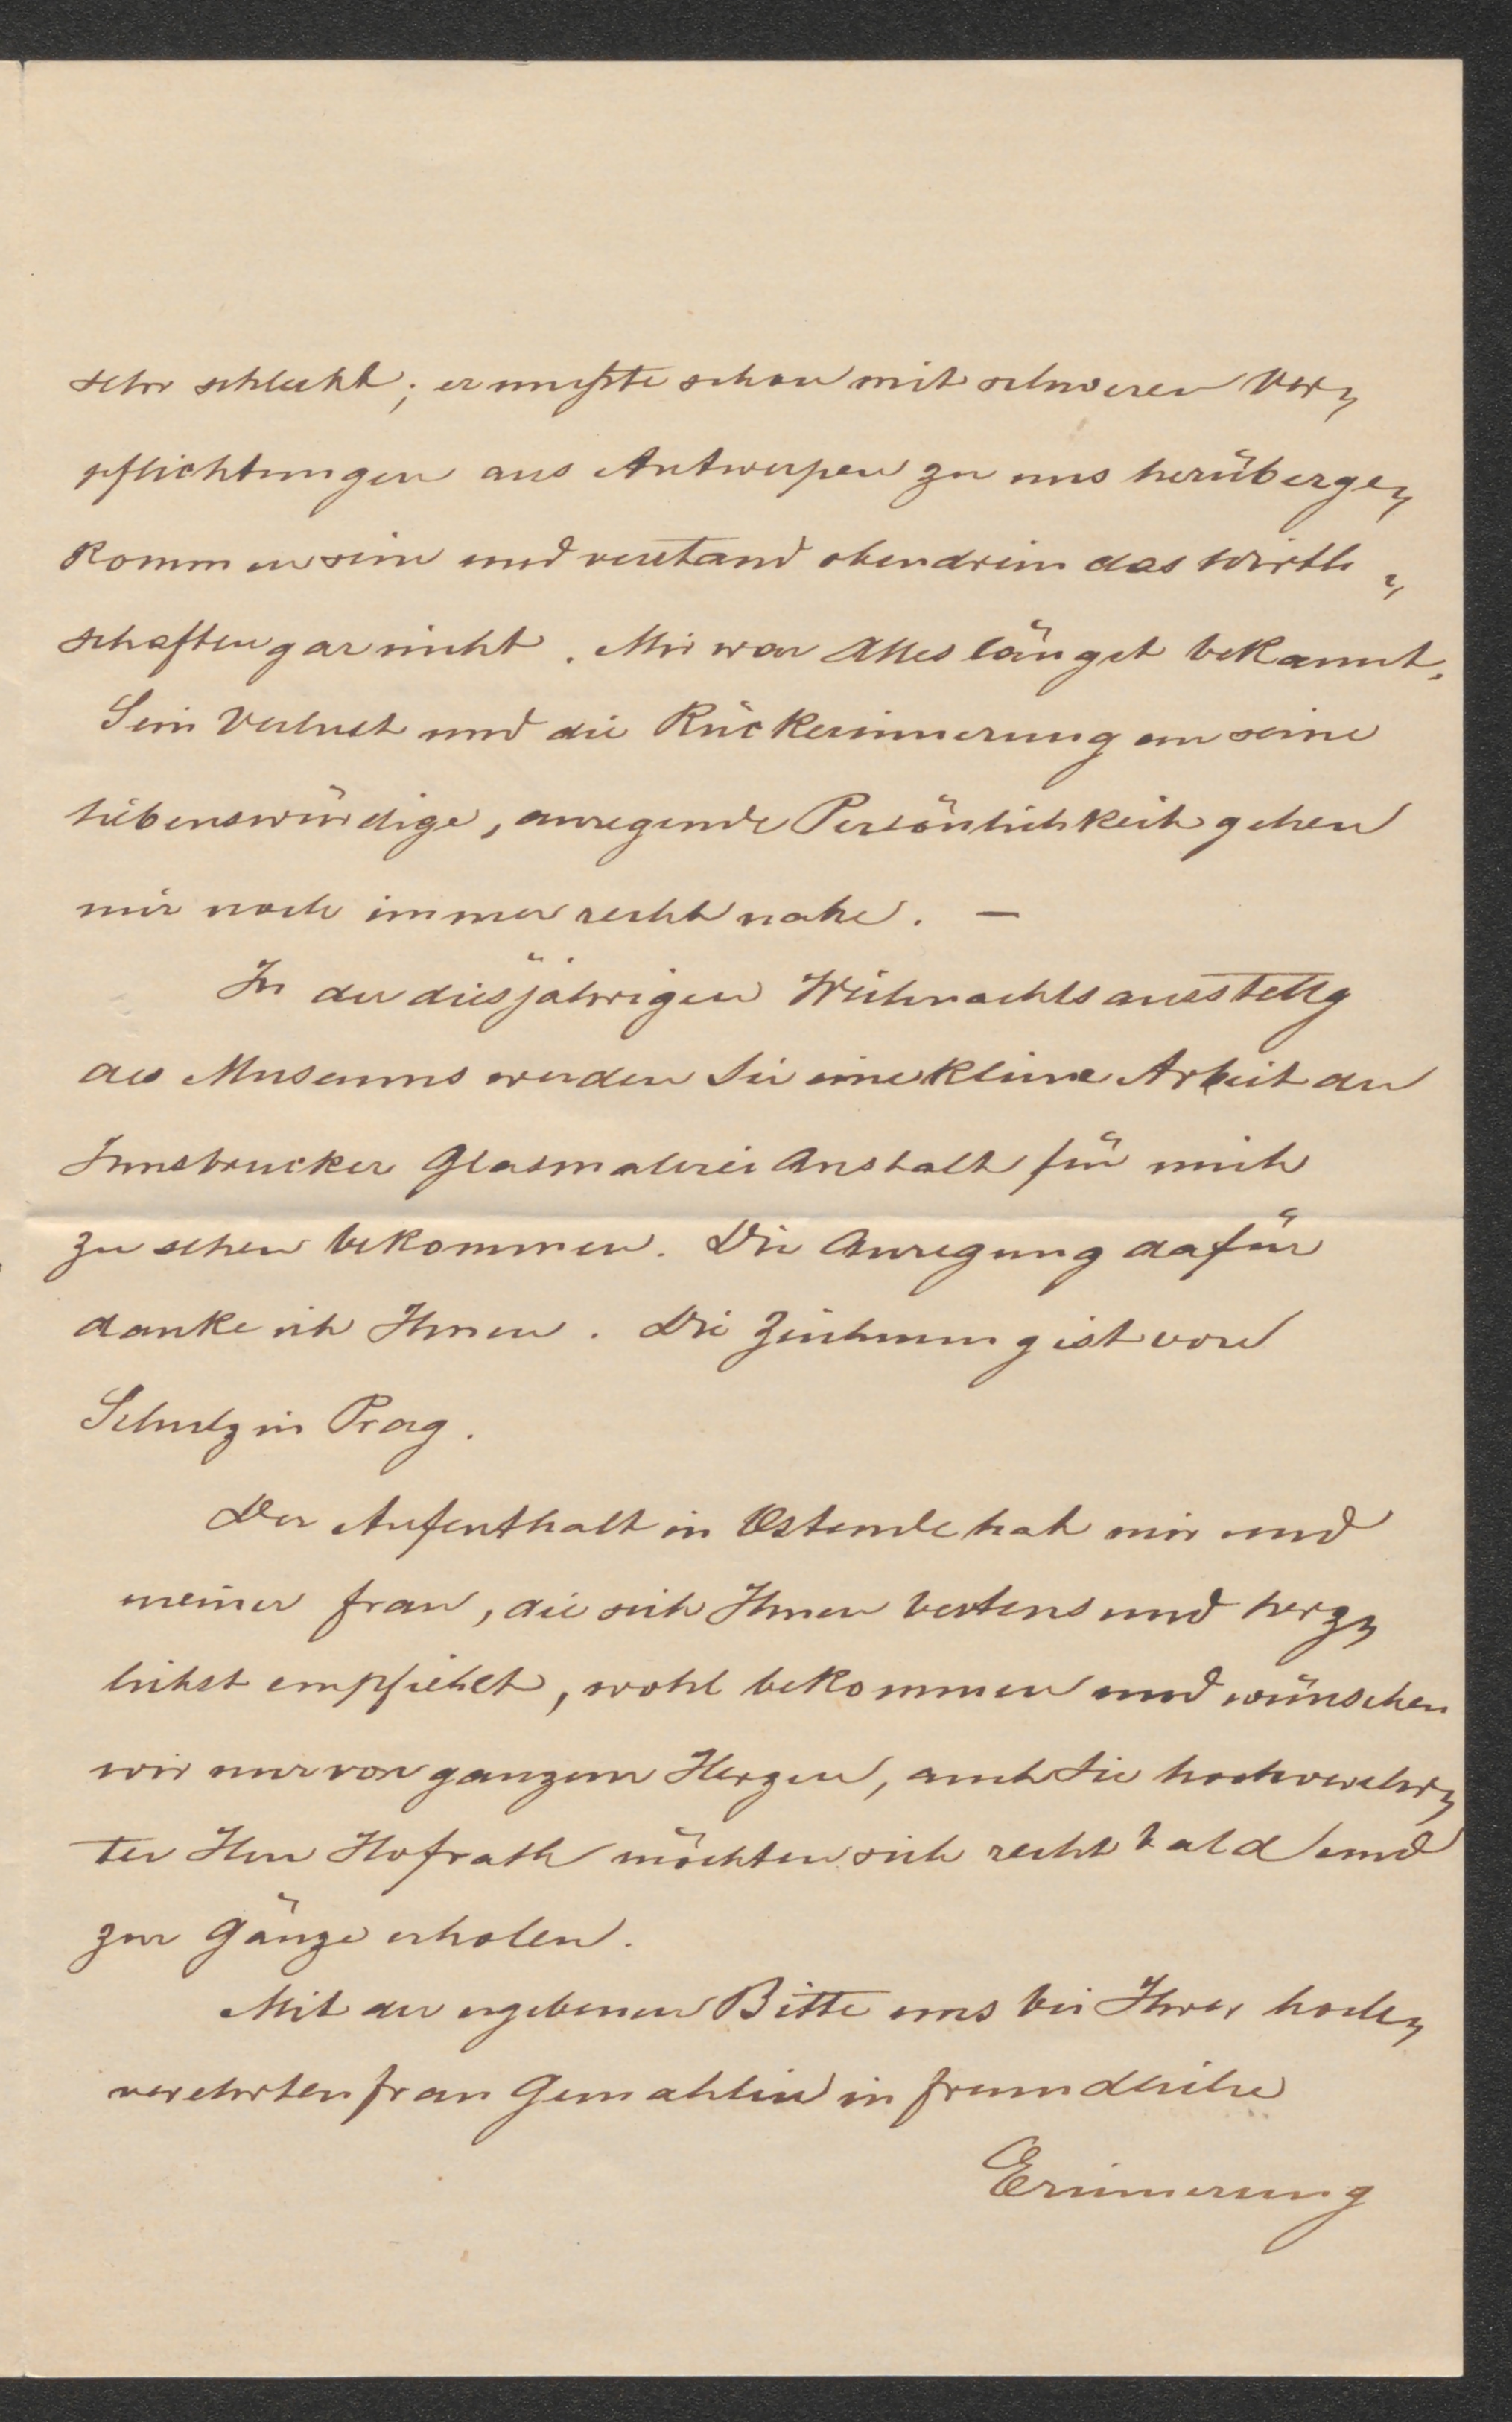 sehr schlecht; er mußte schon mit schweren Ver-
pflichtungen aus Antwerpen zu uns herüberge-
kommen sein und verstand obendrein das Wirth-
schaften gar nicht. Mir war Alles längst bekannt.
Sein Verlust und die Rückerinnerung an seine
liebenswürdige, anregende Persönlichkeit gehen
mir noch immer recht nahe. —
In der diesjährigen Weihnachtsausstellg
des Museums werden Sie eine kleine Arbeit der
Innsbrucker Glasmalerei Anstalt für mich
zu sehen bekommen. Die Anregung dafür
danke ich Ihnen. Die Zeichnung ist von
Schulz in Prag.
Der Aufenthalt in Ostende hat mir und
meiner Frau, die sich Ihnen bestens und herz-
lichst empfiehlt, wohl bekommen und wünschen
wir nur von ganzem Herzen, auch Sie hochverehr-
ter Herr Hofrath möchten sich recht bald und
zur Gänze erholen.
Mit der ergebenen Bitte uns bei Ihrer hoch-
verehrten Frau Gemahlin in freundliche
Erinnerung